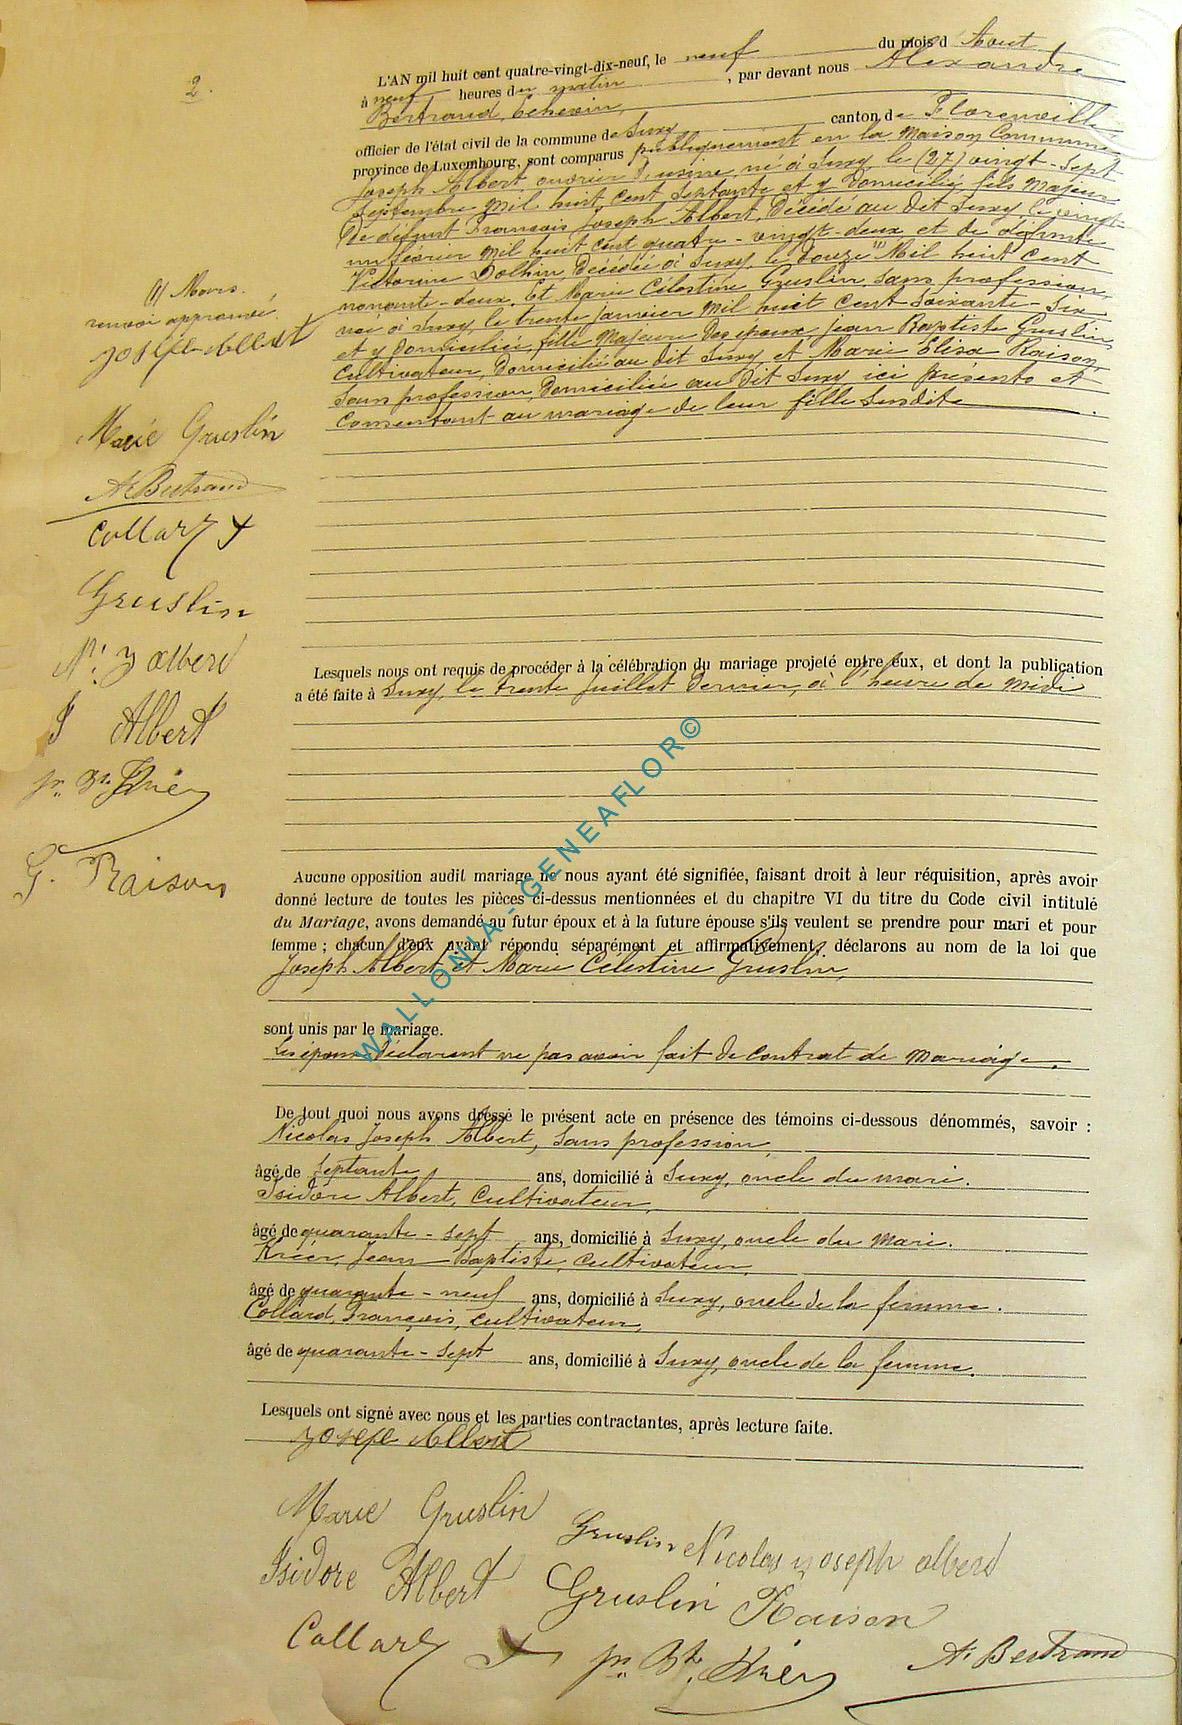 2.
L'AN mil huit cent quatre-vingt-dix-neuf, le neuf du mois d'Aout
à neuf heures du matin, par devant nous Alexandre
Bertrand, Echevin,
officier de l'état civil de la commune de Suxy canton de Florenville
province de Luxembourg, sont comparus publiquement en la Maison Commune
Joseph Albert, ouvrier d'usine, né à Suxy, le (27) vingt-sept
Septembre mil huit cent septante et y domicilié, fils majeur
de défunt François Joseph Albert, décédé au dit Suxy, le vingt-
un février mil huit cent quatre-vingt-deux et de défunte
Victorine Dolhin, décédée à Suxy, le douze (1) Mil huit cent
nonante-deux. Et Marie Célestine Gruslin, sans profession,
née à Suxy, le trente Janvier mil huit cent soixante-six
et y domiciliée, fille Majeure des époux Jean Baptiste Gruslin,
Cultivateur, domicilié au dit Suxy, et Marie Elisa Raison,
sans profession, domiciliée au dit Suxy ici présents et
Consentant au mariage de leur fille susdite.
(1) Mars.
renvoi approuvé.
Joseph Albert
Marie Gruslin
A. Bertrand
Collard
Gruslin
N. J albert
I Albert
jn. Bte. Krier
G. Raison
Lesquels nous ont requis de procéder à la célébration du mariage projeté entre eux, et dont la publication
a été faite à Suxy, le trente Juillet dernier, à l'heure de midi
Aucune opposition audit mariage ne nous ayant été signifiée, faisant droit à leur réquisition, après avoir
donné lecture de toutes les pièces ci-dessus mentionnées et du chapitre VI du titre du Code civil intitulé
du Mariage, avons demandé au futur époux et à la future épouse s'ils veulent se prendre pour mari et pour
femme ; chacun d'eux ayant répondu séparément et affirmativement, déclarons au nom de la loi que
Joseph Albert, et Marie Célestine Gruslin,
sont unis par le mariage.
Les époux déclarent ne pas avoir fait de contrat de mariage.
De tout quoi nous avons dressé le présent acte en présence des témoins ci-dessous dénommés, savoir :
Nicolas Joseph Albert, sans profession,
âgé de septante ans, domicilié à Suxy, oncle du mari.
Isidore Albert, Cultivateur,
âgé de quarante-sept ans, domicilié à Suxy, oncle du mari.
Krier, Jean Baptiste, cultivateur,
âgé de quarante-neuf ans, domicilié à Suxy, oncle de la femme.
Collard, François, cultivateur,
âgé de quarante-sept ans, domicilié à Suxy, oncle de la femme.
Lesquels ont signé avec nous et les parties contractantes, après lecture faite.
Joseph Albert
Marie Gruslin
Gruslin Nicolas joseph alberd
Isidore Albert Gruslin Raison
Collard jn. Bte. Krier A. Bertrand
WALLONIA - GENEAFLOR©